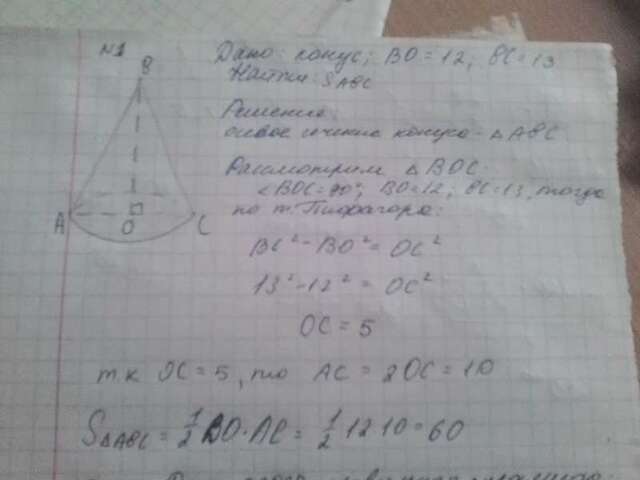 №1
Дано: конус; BO = 12, BC = 13
Найти: SABC
Решение:
осевое сечение конуса - △ABC
Рассмотрим △BOC
∠BOC = 90°; BO = 12; BC = 13, тогда
по т. Пифагора:
BC² - BO² = OC²
13² - 12² = OC²
OC = 5
т.к OC = 5, то AC = 2OC = 10
S△ABC = 1/2 BO · AC = 1/2 12 · 10 = 60
B
A
O
C